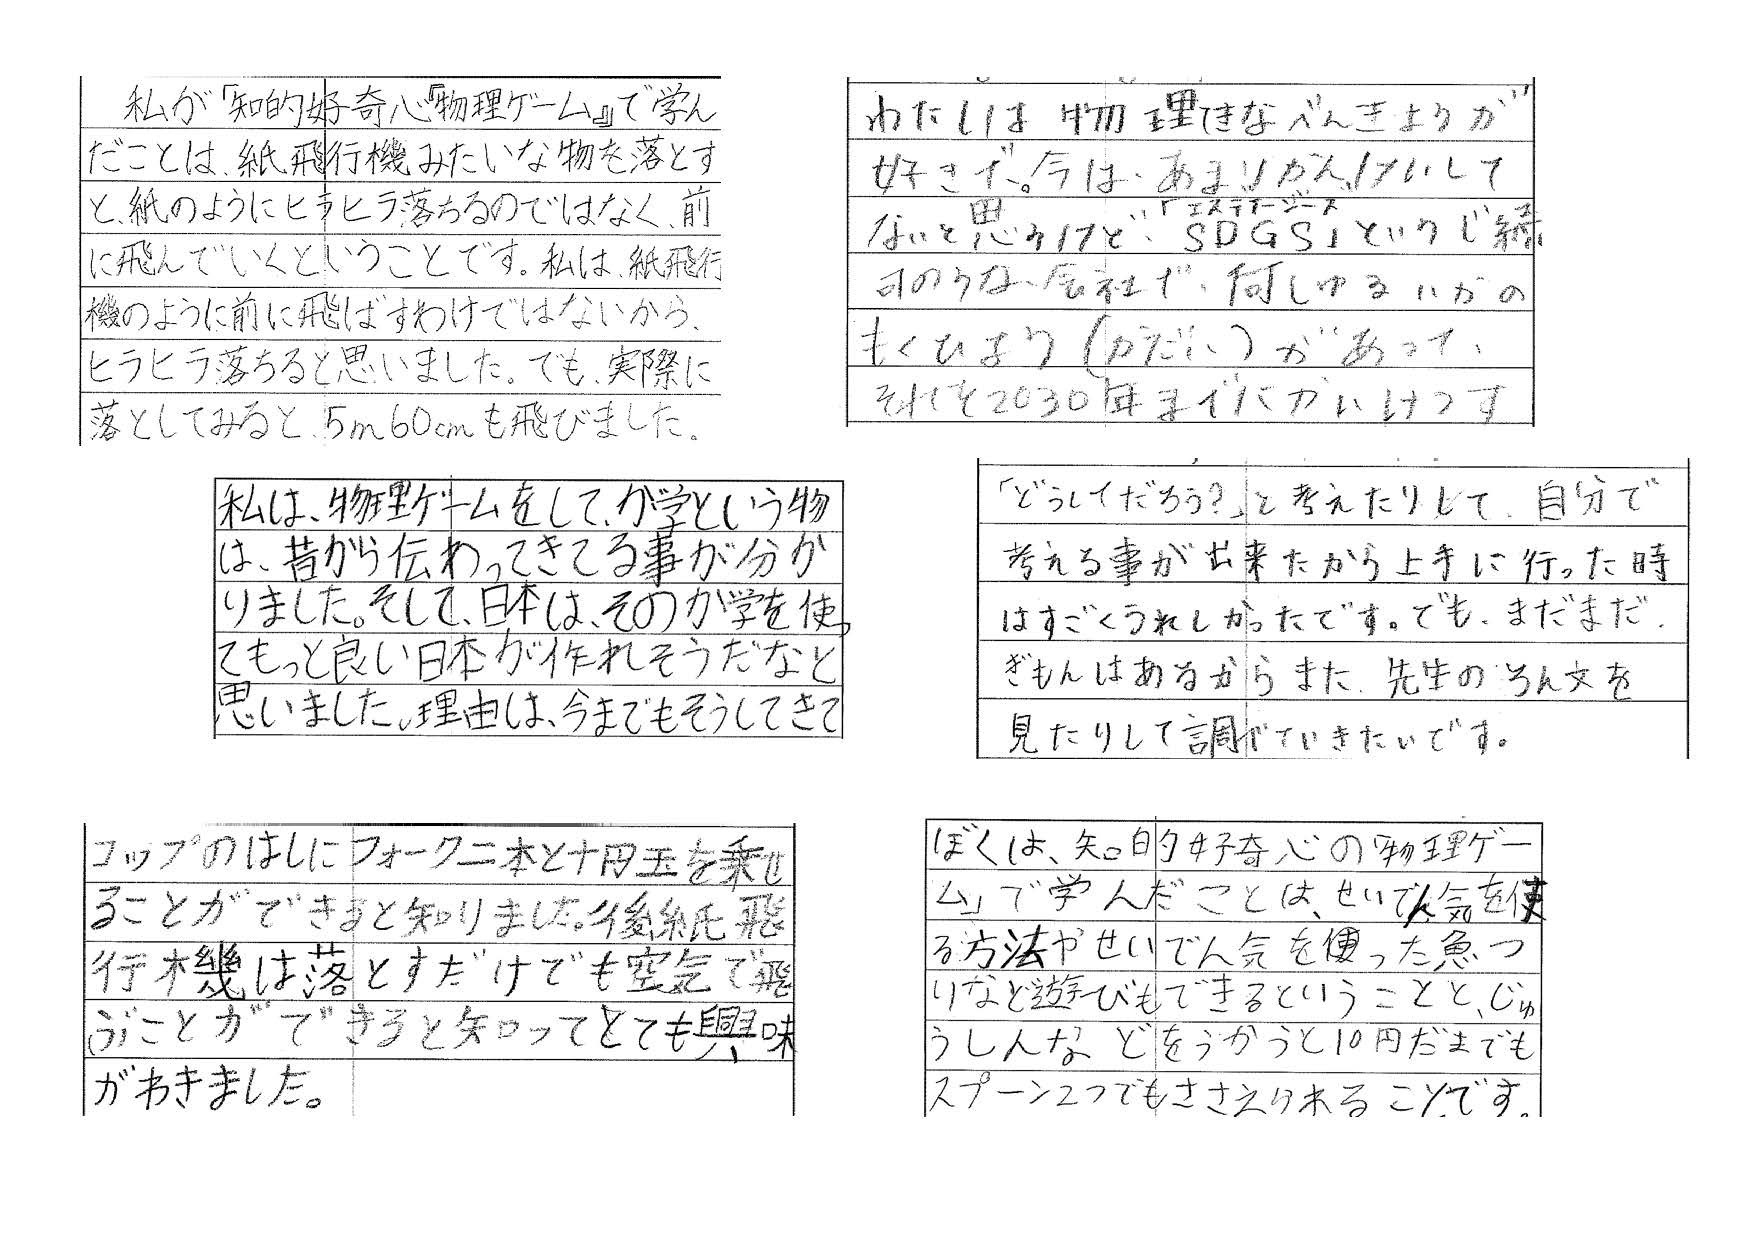 私が「知的好奇心『物理ゲーム』で学ん
だことは、紙飛行機みたいな物を落とす
と、紙のようにヒラヒラ落ちるのではなく、前
に飛んでいくということです。私は、紙飛行
機のように前に飛ばすわけではないから、
ヒラヒラ落ちると思いました。でも、実際に
落としてみると、5m60cmも飛びました。
わたしは物理てきなべんきょうが
好きで。今は、あまりかんけいして
ないと思うけど、「SDGS」というじ続
エステイージーズ
可のうな、会社で、何しゅるいかの
もくひょう(かだい)があって、
それを2030年までにかいけつす
私は、物理ゲームをして、か学という物
は、昔から伝わってきてる事が分か
りました。そして、日本は、そのか学を使っ
てもっと良い日本が作れそうだなと
思いました。理由は、今までもそうしてきて
「どうしてだろう?」と考えたりして、自分で
考える事が出来たから上手に行った時
はすごくうれしかったです。でも、まだまだ、
ぎもんはあるからまた、先生のろん文を
見たりして調べていきたいです。
コップのはしにフォーク二本と十円玉を乗せ
ることができると知りました。後紙飛
行機は落とすだけでも空気で飛
ぶことができると知ってとても興味
がわきました。
ぼくは、知的好奇心の「物理ゲー
ム」で学んだことは、せいでん気を使
る方法やせいでん気を使った魚つ
りなど遊びもできるということと、じゅ
うしんなどをうかうと10円だまでも
スプーン2つでもささえられることです。